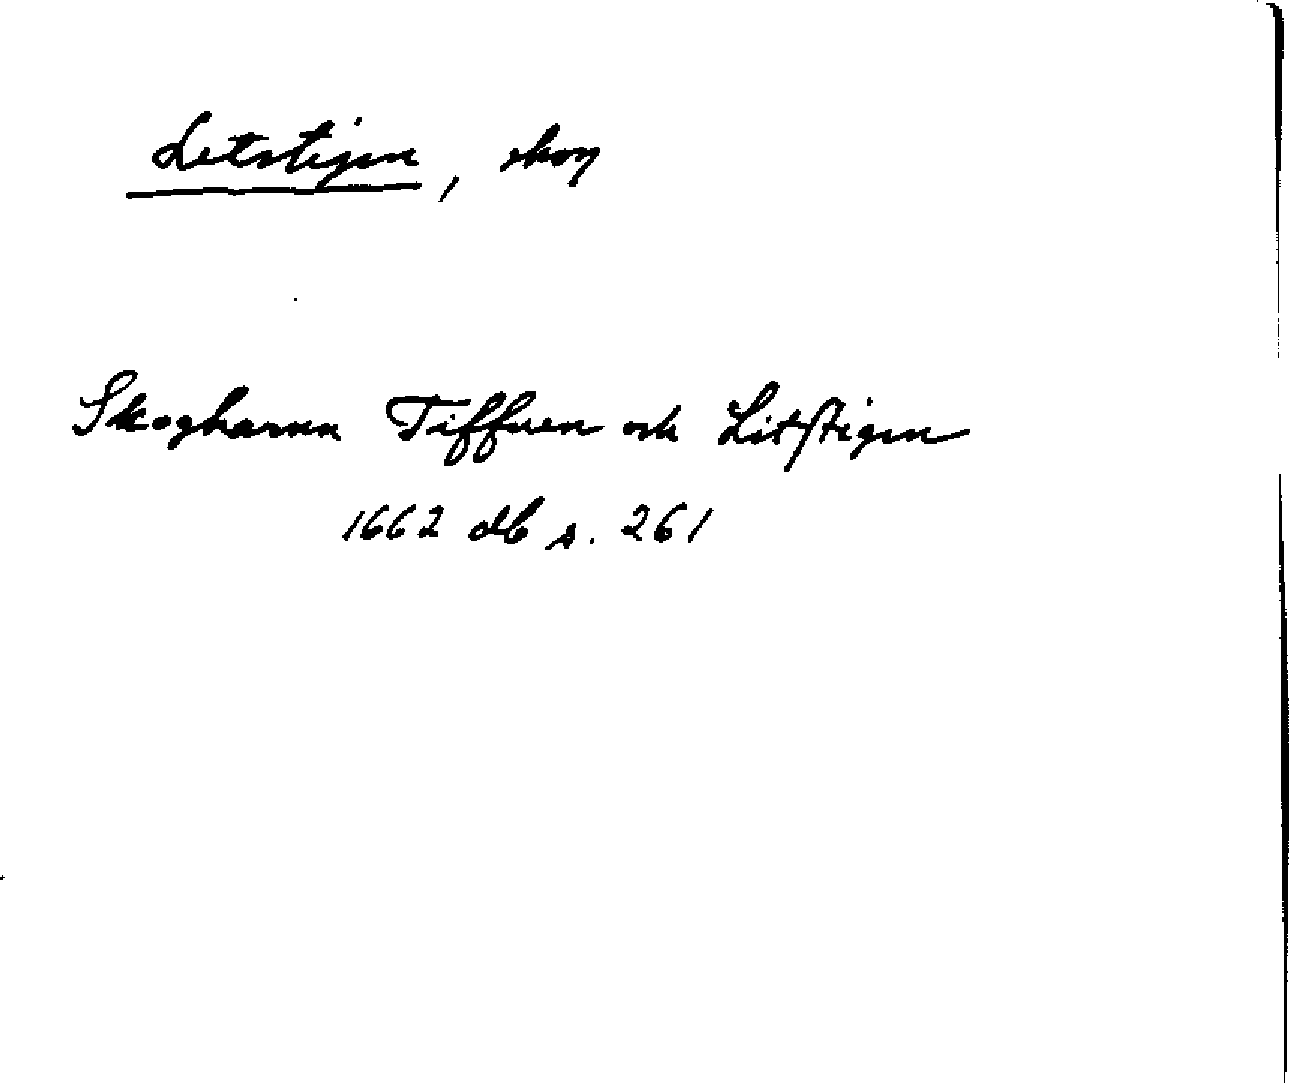 Letstigen, skog
Skogharna Tiffuen och Litstigen
1662 db s. 261